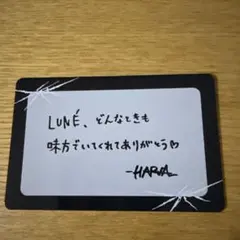 LUNÉ、どんなときも
味方でいてくれてありがとうり
-HARUA